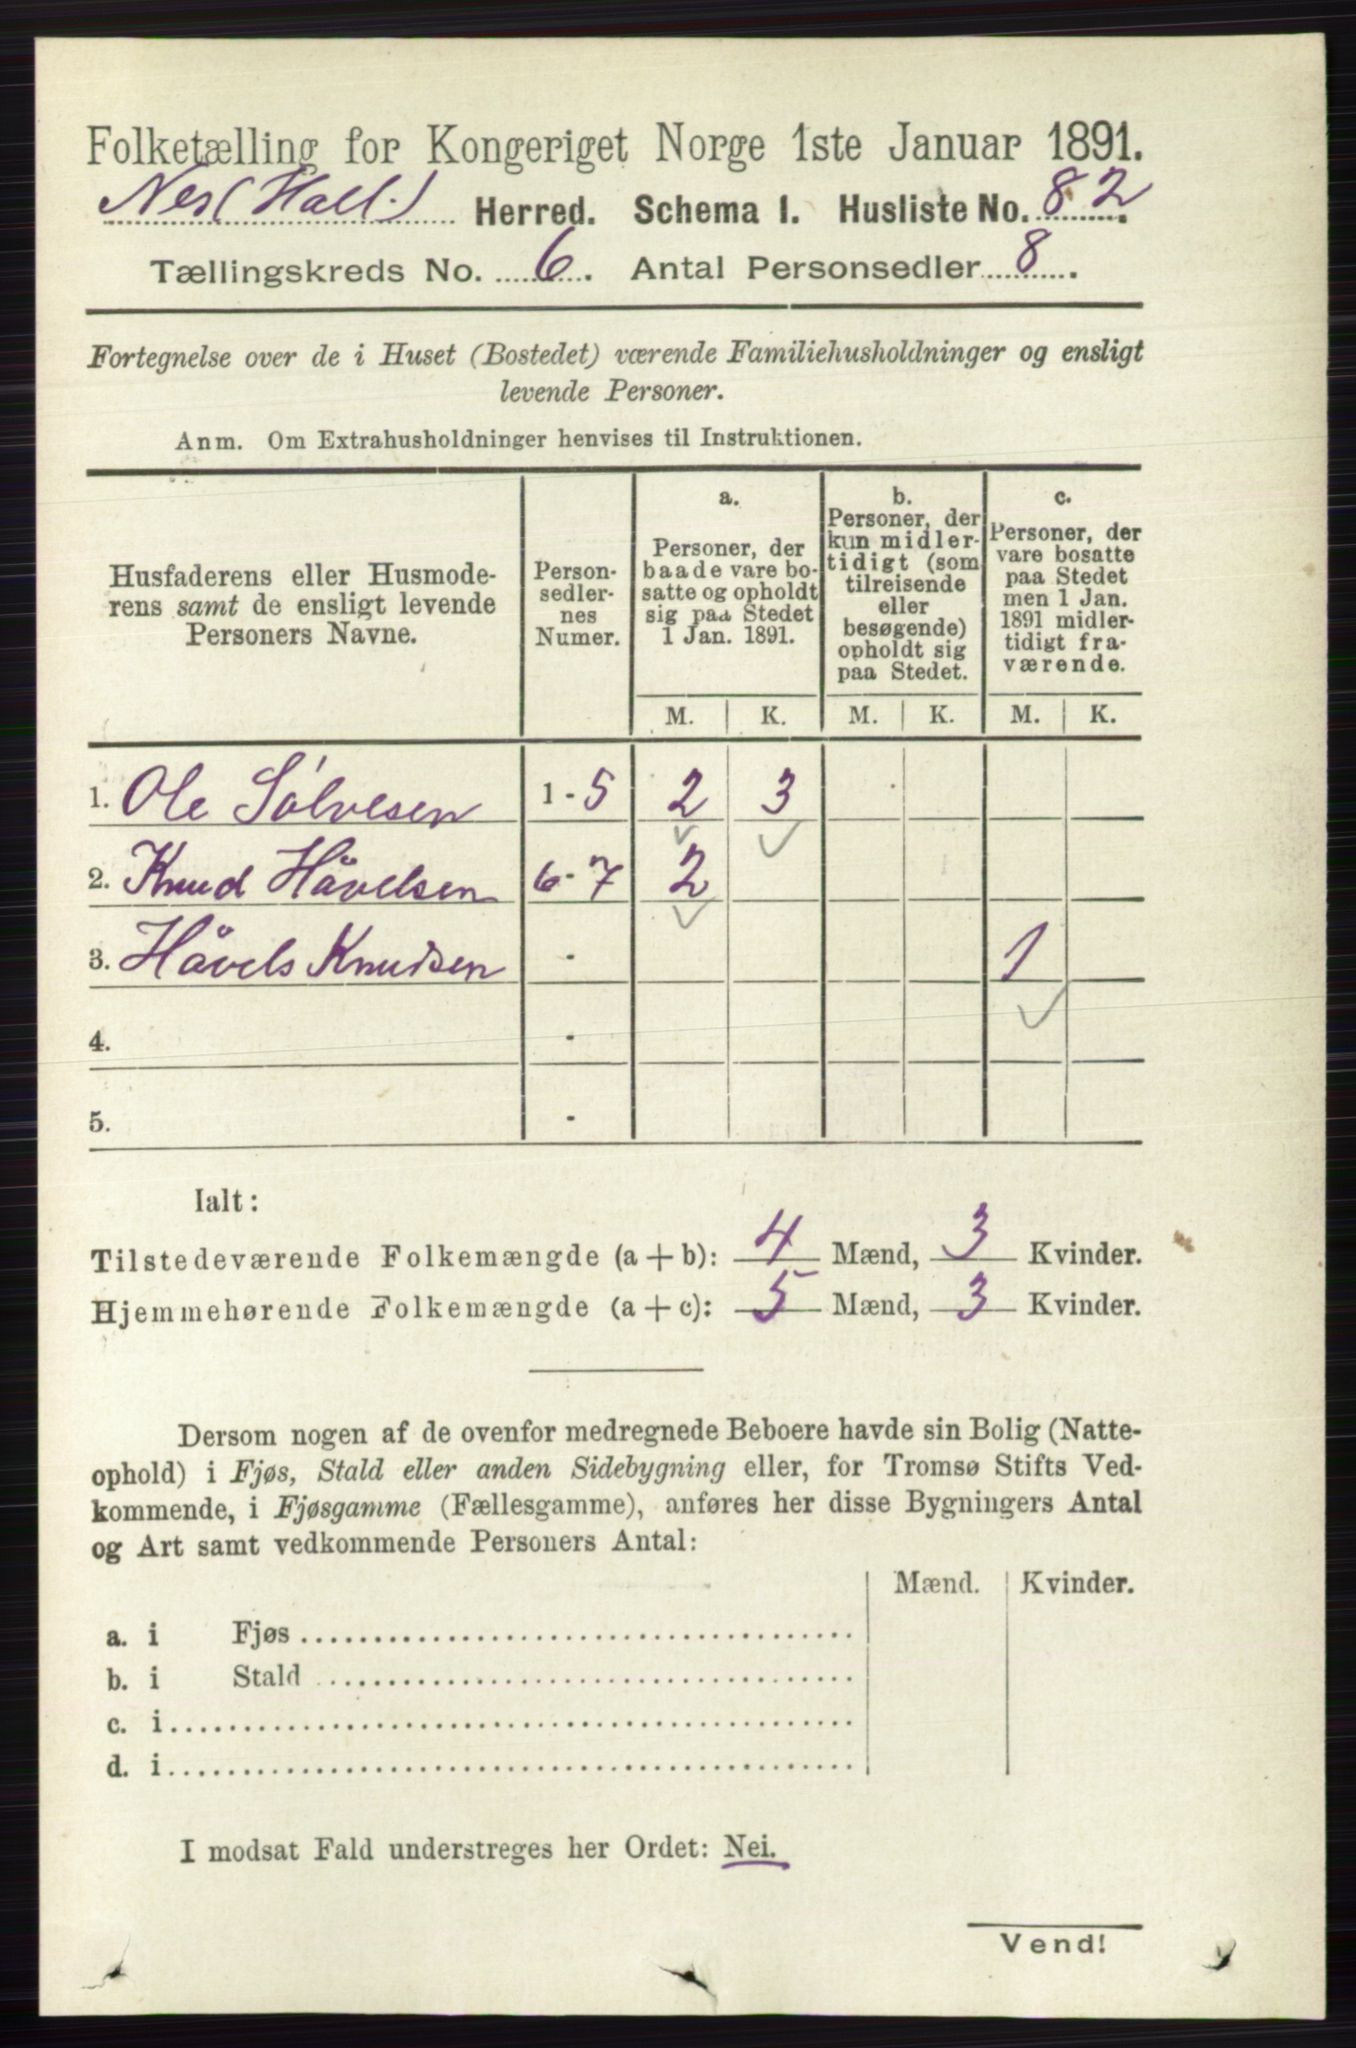 Folketælling for Kongeriget Norge 1ste Januar 1891.
Nes (Hall.) Herred. Schema I. Husliste No. 82.
Tællingskreds No. 6. Antal Personsedler 8.
Fortegnelse over de i Huset (Bostedet) værende Familiehusholdninger og ensligt
levende Personer.
Anm. Om Extrahusholdninger henvises til Instruktionen.
Husfaderens eller Husmode-
rens samt de ensligt levende
Personers Navne.
Person-
sedler-
nes
Numer.
a.
Personer, der
baade vare bo-
satte og opholdt
sig paa Stedet
1 Jan. 1891.
b.
Personer, der
kun midler-
tidigt (som
tilreisende
eller
besøgende)
opholdt sig
paa Stedet.
c.
Personer, der
vare bosatte
paa Stedet
men 1 Jan.
1891 midler-
tidigt fra-
værende.
M. K. M. K. M. K.
1. Ole Sølvesen 1 - 5 2 3
2. Knud Håvelsen 6 - 7 2
3. Håvels Knudsen - 1
4. -
5. -
Ialt:
Tilstedeværende Folkemængde (a + b): 4 Mænd, 3 Kvinder.
Hjemmehørende Folkemængde (a + c): 5 Mænd, 3 Kvinder.
Dersom nogen af de ovenfor medregnede Beboere havde sin Bolig (Natte-
ophold) i Fjøs, Stald eller anden Sidebygning eller, for Tromsø Stifts Ved-
kommende, i Fjøsgamme (Fællesgamme), anføres her disse Bygningers Antal
og Art samt vedkommende Personers Antal:
Mænd. Kvinder.
a. i Fjøs
b. i Stald
c. i
d. i
I modsat Fald understreges her Ordet: Nei.
Vend!